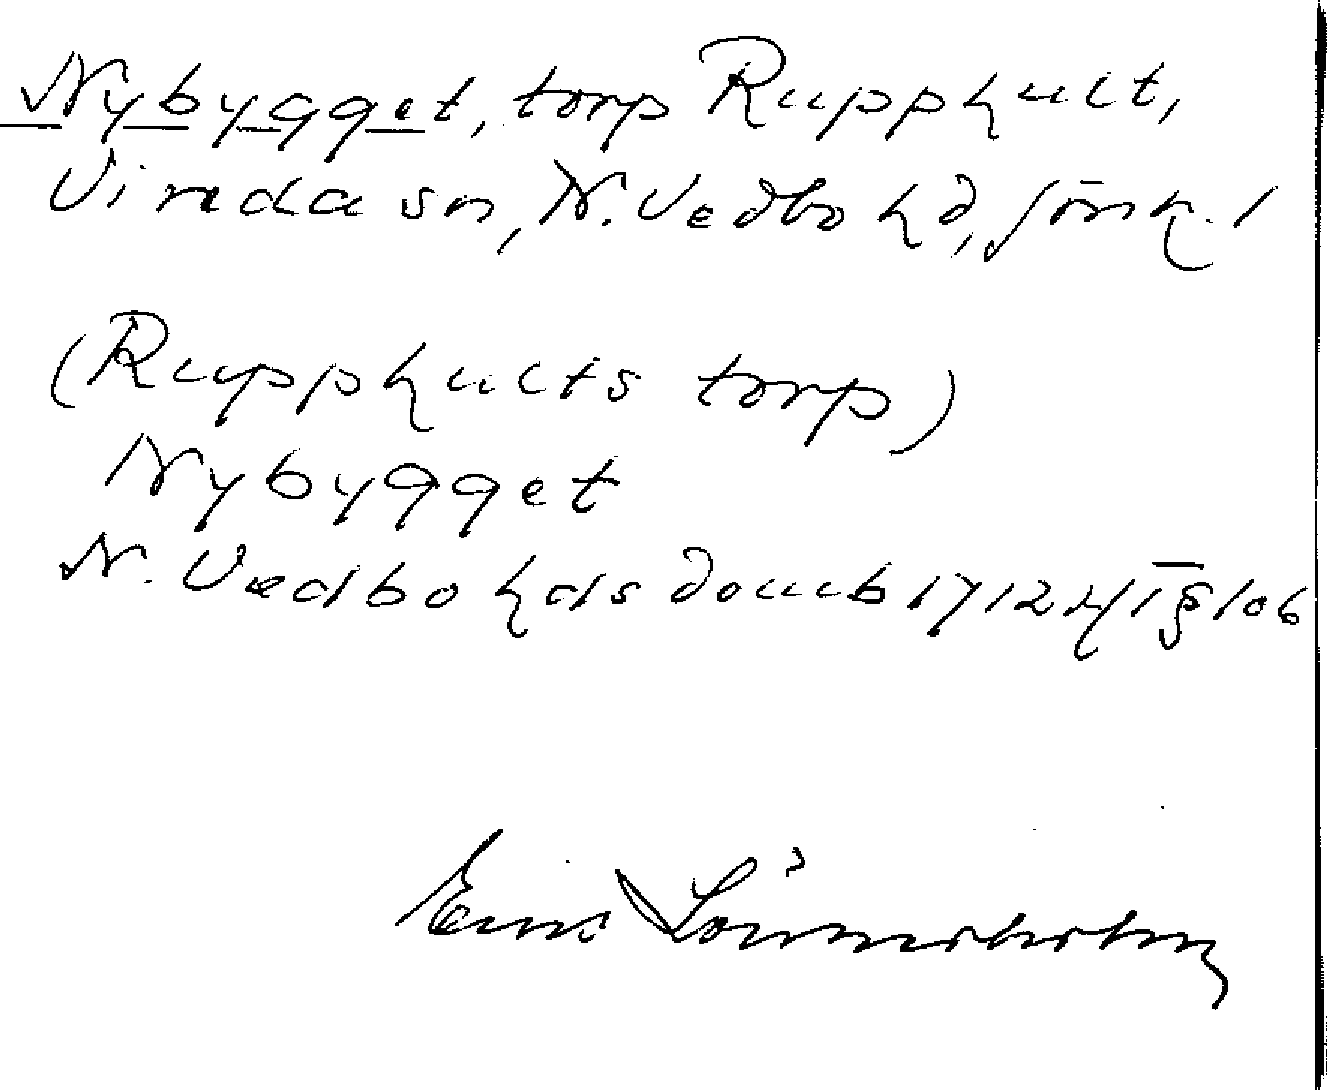 Nybygget, torp Rupphult,
Vireda sn, N. Vedbo hd, Jönk. l
(Rupphults torp)
Nybygget
N. Vedbo hds domb 1712 4/12 § 106